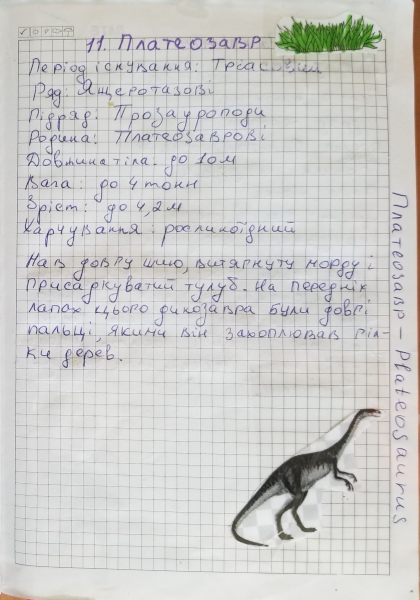 11. Платеозавр
Період існування: Тріасовий
Ряд: Ящеротазові
Підряд: Прозауроподи
Родина: Платеозаврові
Довжина тіла: до 10 м
Вага: до 4 тонн
Зріст: до 4,2 м
Харчування: рослиноїдний
Мав довгу шию, витягнуту морду і
присадкуватий тулуб. На передніх
лапах цього динозавра були довгі
пальці, якими він захоплював гіл-
ки дерев.
Платеозавр – Plateosaurus